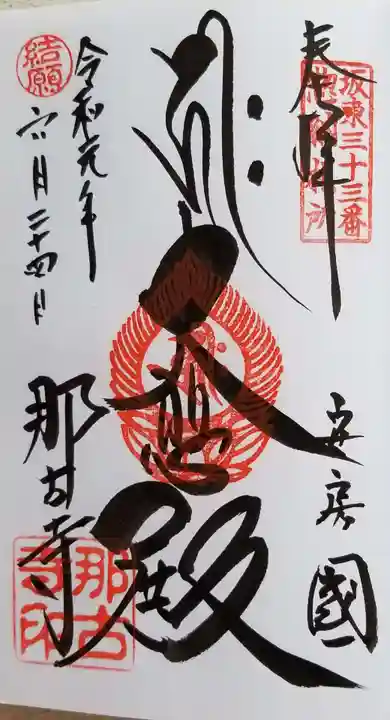 奉拝
坂東三十三番
満願札所
安房國
大悲殿
那古寺
令和元年
六月二十四日
結願
那古寺印